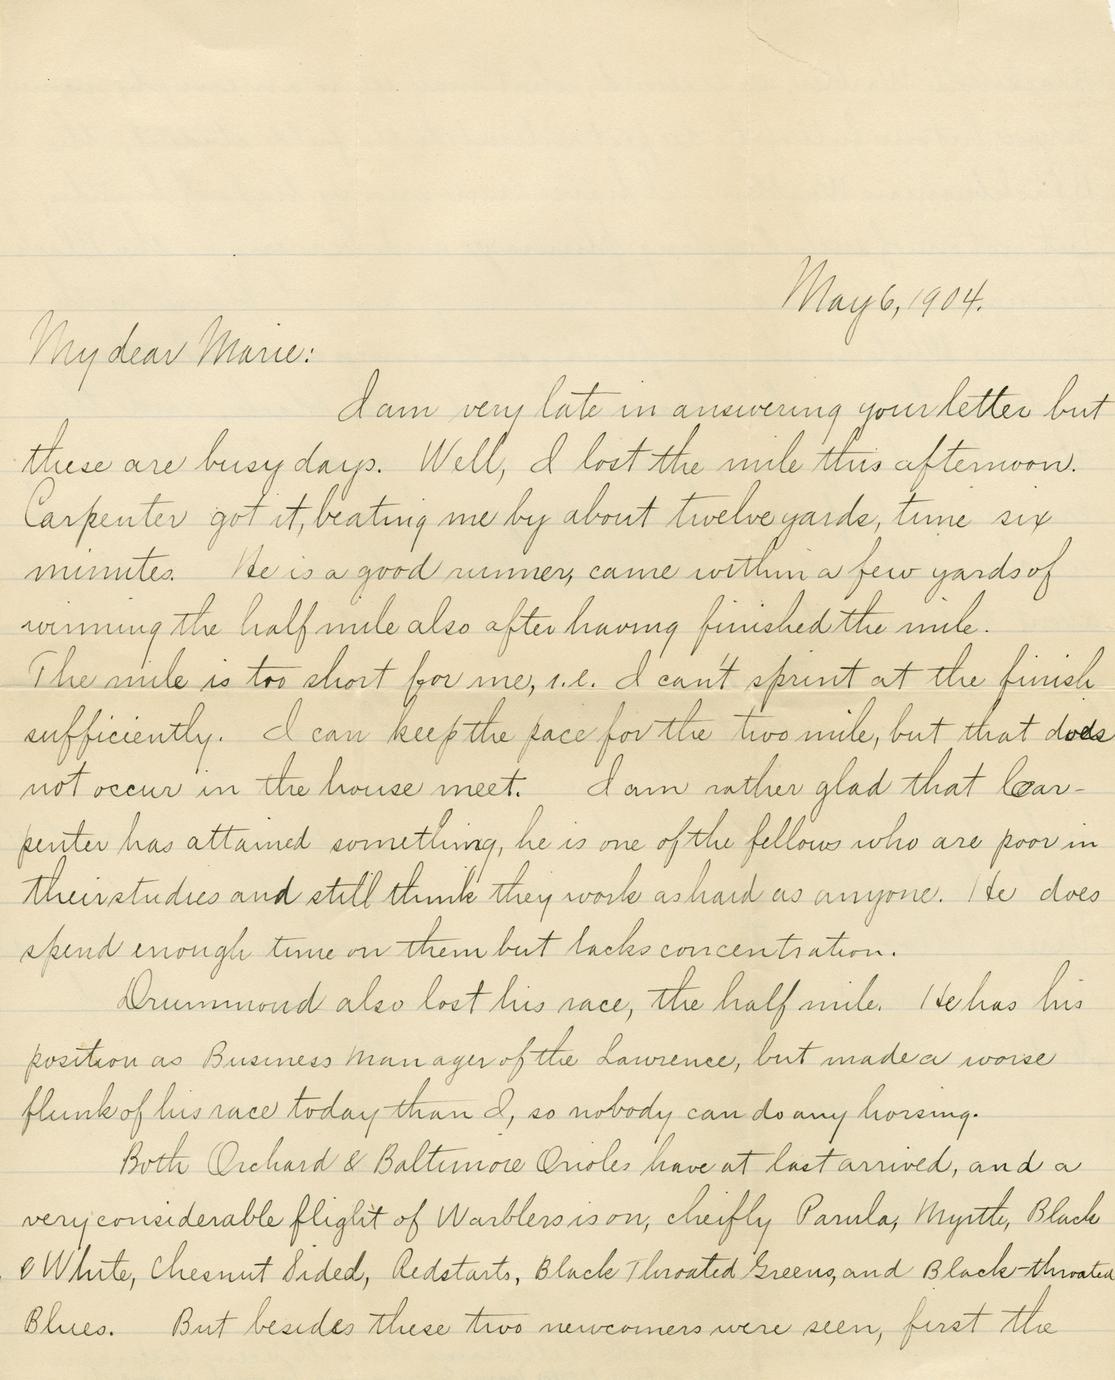 May 6, 1904.
My dear Marie:
I am very late in answering your letter but
these are busy days. Well, I lost the mile this afternoon.
Carpenter got it, beating me by about twelve yards, time six
minutes. He is a good runner, came within a few yards of
winning the half mile also after having finished the mile.
The mile is too short for me, i.e. I can't sprint at the finish
sufficiently. I can keep the pace for the two mile, but that does
not occur in the house meet. I am rather glad that Car-
penter has attained something, he is one of the fellows who are poor in
their studies and still think they work as hard as anyone. He does
spend enough time on them but lacks concentration.
Drummond also lost his race, the half mile. He has his
position as Business Manager of the Lawrence, but made a worse
flunk of his race today than I, so nobody can do any horsing.
Both Orchard & Baltimore Orioles have at last arrived, and a
very considerable flight of Warblers is on, cheifly Parula, Myrtle, Black
& White, Chesnut Sided, Redstarts, Black Throated Greens, and Black-throated
Blues. But besides these two newcomers were seen, first the